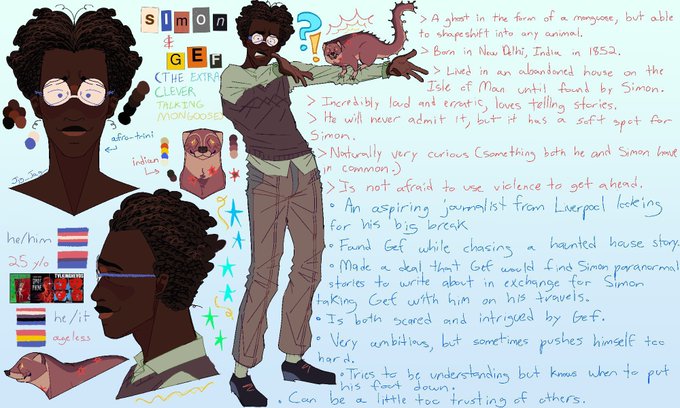 SImon
&
GEF
(THE EXTRA
CLEVER
TALKING
MONGOOSE)
afro-trini
indian
he/him
25 y/o
he/it
ageless
> A ghost in the form of a mongoose, but able
to shapeshift into any animal.
> Born in New Delhi, India in 1852.
> Lived in an abandoned house on the
Isle of Man until found by Simon.
> Incredibly loud and erratic, loves telling stories.
> He will never admit it, but it has a soft spot for
Simon.
> Naturally very curious (something both he and Simon have
in common.)
> Is not afraid to use violence to get ahead.
• An aspiring journalist from Liverpool looking
for his big break
• Found Gef while chasing a haunted house story.
• Made a deal that Gef would find Simon paranormal
stories to write about in exchange for Simon
taking Gef with him on his travels.
• Is both scared and intrigued by Gef.
• Very ambitious, but sometimes pushes himself too
hard.
• Tries to be understanding but knows when to put
his foot down.
• Can be a little too trusting of others.